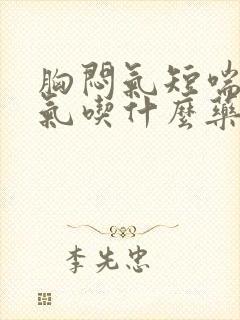 胸悶氣短喘
氣喫什麼藥
李先忠